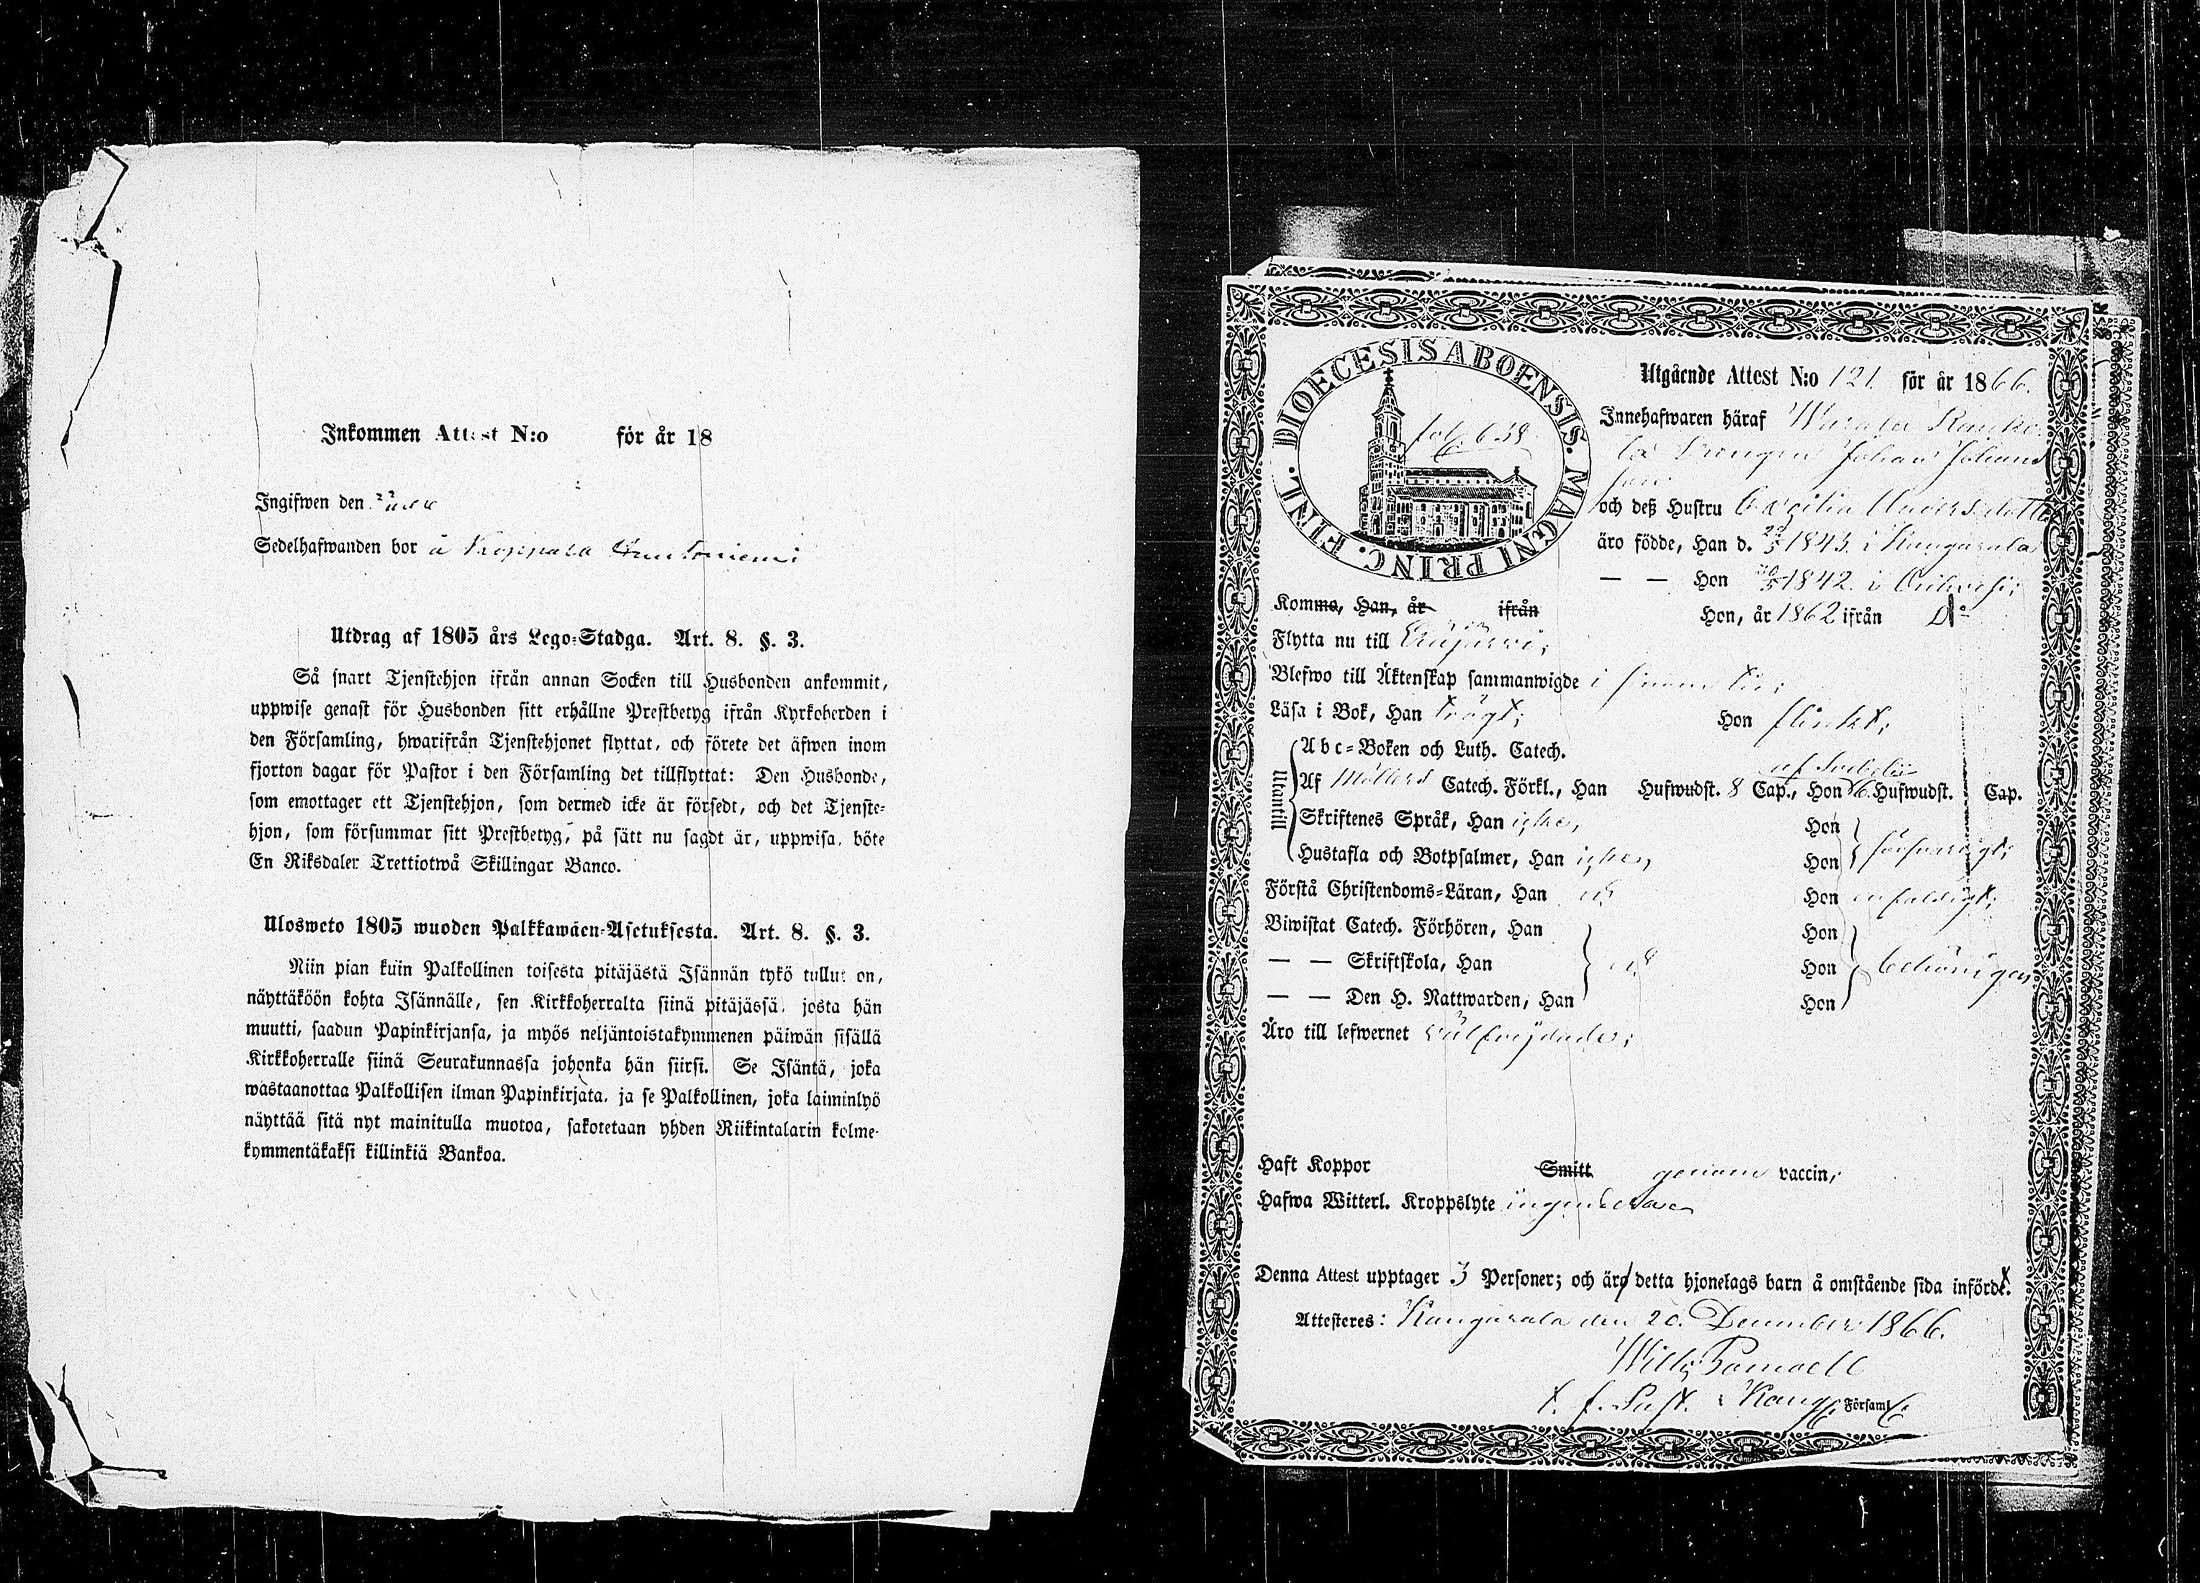 Inkommen Attest N:o för år 18
Ingifwen den
Sedelhafwanden bor å
Utdrag af 1805 års Lego-Stadga. Art. 8. §. 3.
Så snart Tjenstehjon ifrån annan Socken till Husbonden ankommit,
uppwise genast för Husbonden sitt erhållne Prestbetyg ifrån Kyrkoherden i
den Församling, hwarifrån Tjenstehjonet flyttat, och förete det äfwen inom
fjorton dagar för Pastor i den Församling det tillflyttat: Den Husbonde,
som emottager ett Tjenstehjon, som dermed icke är försedt, och det Tjenste-
hjon, som försummar sitt Prestbetyg, på sätt nu sagdt är, uppwisa, böte
En Riksdaler Trettiotwå Skillingar Banco.
Ulosweto 1805 wuoden Palkkawäen-Asetuksesta. Art. 8. §. 3.
Niin pian kuin Palkollinen toisesta pitäjästä Isännän tykö tullut on,
näyttäköön kohta Isännälle, sen Kirkkoherralta siinä pitäjässä, josta hän
muutti, saadun Papinkirjansa, ja myös neljäntoistakymmenen päiwän sisällä
Kirkkoherralle siinä Seurakunnassa johonka hän siirsi. Se Isäntä, joka
wastaanottaa Palkollisen ilman Papinkirjata, ja se Palkollinen, joka laiminlyö
näyttää sitä nyt mainitulla muotoa, sakotetaan yhden Riikintalarin kolme-
kymmentäkaksi killinkiä Bankoa.
DIOECESIS ABOENSIS. MAGNI PRINC. FINL.
fol. 638
Utgående Attest N:o 121 för år 1866.
Innehafwaren häraf
Drengen Johan Johans
son
och deß Hustru
äro födde, Han d. 1843 i Kangasala
— — Hon 1842 i Orihvesi;
Komma, Han, år ifrån Hon, år 1862 ifrån
Flytta nu till
Blefwo till Äktenskap sammanwigde i
Läsa i Bok, Han trögt; Hon flinkt;
Utantill
Abc-Boken och Luth. Catech.
af
Af Möllers Catech. Förkl., Han Hufwudst. 8 Cap., Hon 6 Hufwudst. Cap.
Skriftenes Språk, Han icke, Hon
Hustafla och Botpsalmer, Han icke, Hon försvarligt;
Förstå Christendoms-Läran, Han Hon enfaldigt;
Biwistat Catech. Förhören, Han Hon
— — Skriftskola, Han Hon behörigen
— — Den H. Nattwarden, Han Hon
Äro till lefwernet välfrejdade;
Haft Koppor Smitt genom vaccin;
Hafwa Witterl. Kroppslyte
Denna Attest upptager 3 Personer; och äro detta hjonelags barn å omstående sida införde.
Attesteres: Kangasala den 20. December 1866.
t. f. Past. i Kang. Församl.